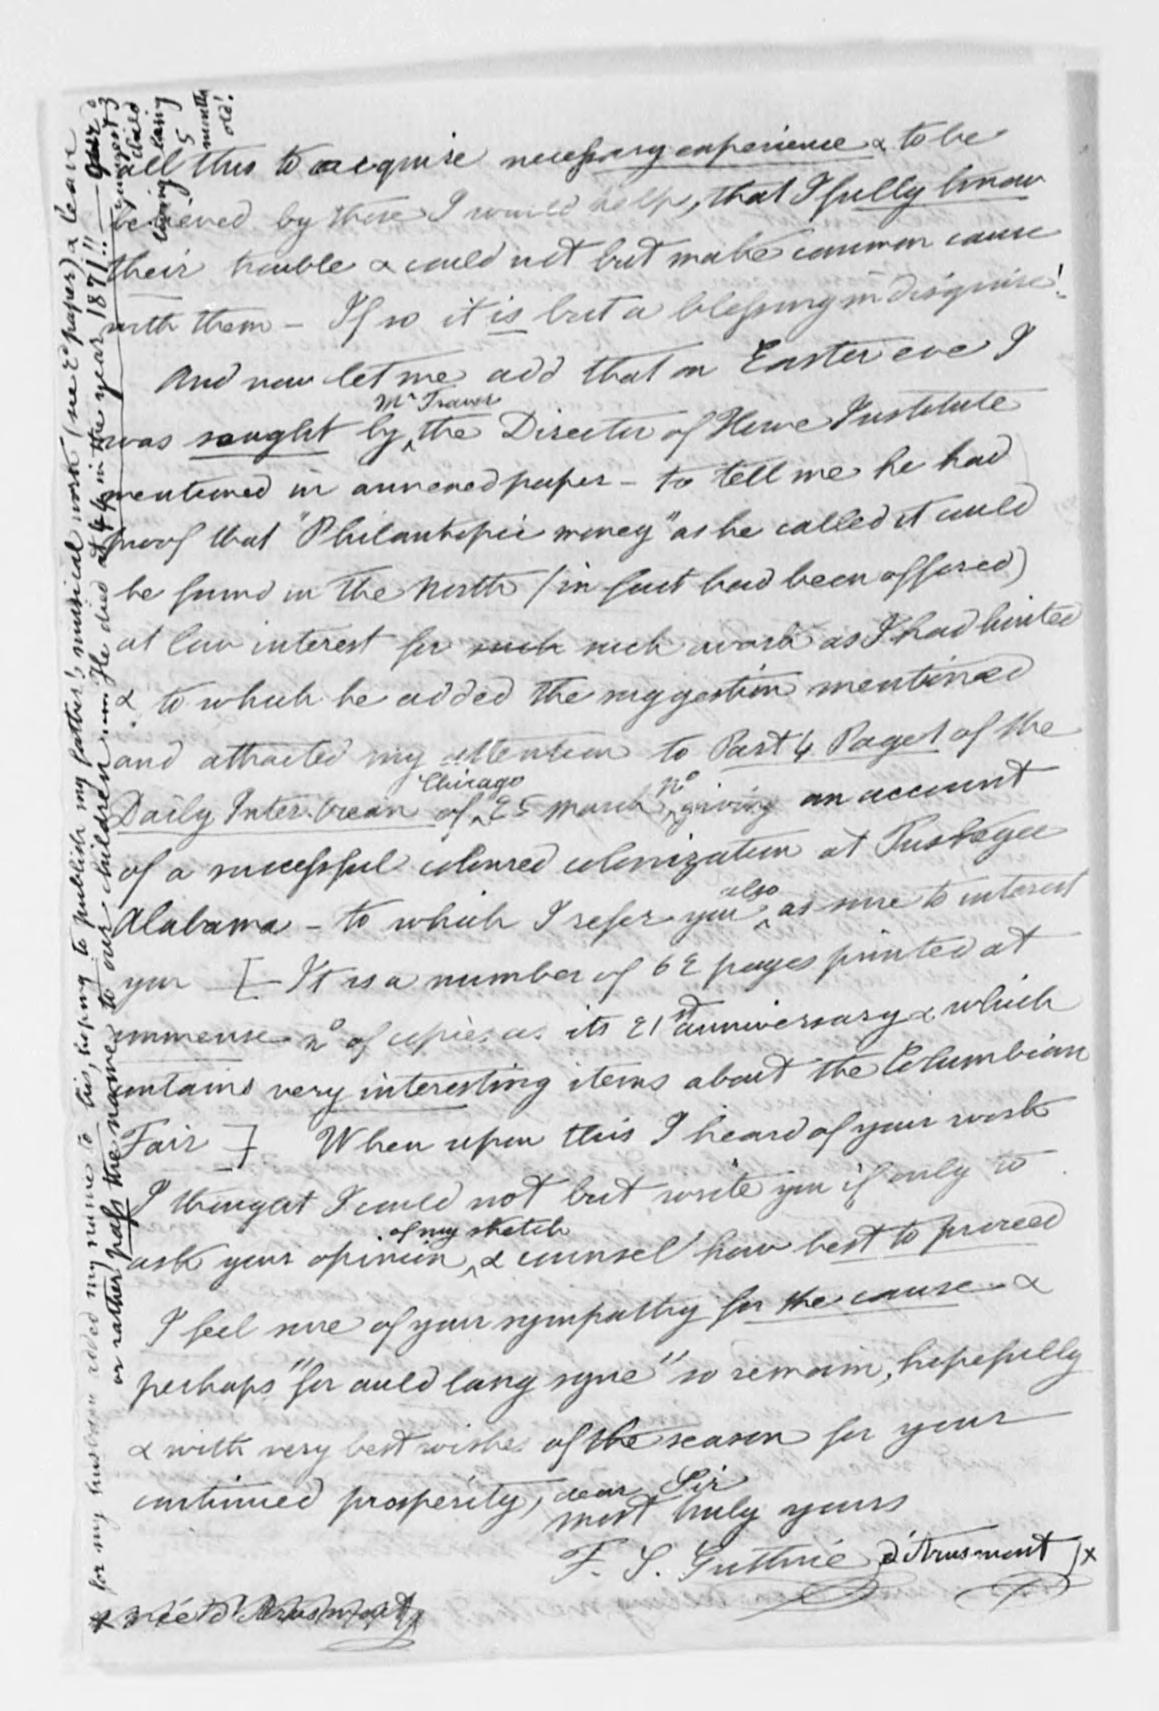 all this to acquire necessary experience & to be
believed by those I would help, that I fully know
their trouble & could not but make common cause
with them – If so it is but a blessing in disguise!
And now let me add that on Easter eve I
was sought by ^ Mr Traver the Director of Howe Institute
mentioned in annexed paper – to tell me he had
proof that "Philantropic money" as he called it could
be found in the North (in fact had been offered)
at low interest for such such work as I had hinted
& to which he added the suggestion mentioned
and attracted my attention to Part 4 Page 1 of the
Daily Inter. Ocean of ^ Chicago 25 March ^ no giving an account
of a successful coloured colonization at Tuskegee
Alabama – to which I refer you ^ also as sure to interest
you [– It is a number of 62 pages printed at
immense no of copies as its 21st anniversary & which
contains very interesting items about the Columbian
Fair ] When upon this I heard of your work
I thought I could not but write you if only to
ask your opinion, ^ of my sketch & counsel how best to proceed
I feel sure of your sympathy for the cause – &
perhaps "for auld lang syne" so remain, hopefully
& with very best wishes of the season for your
continued prosperity, dear Sir
most truly yours
F. S. Guthrie d'Arusmont ] x
x née d'Arusmont
x for my husband added my name to his, hoping to publish my father's musical work (see 2d paper) & leave
or rather pass the name to our children. He died at 44 in the year 1871!! – our
youngest child
being
5
months
old!